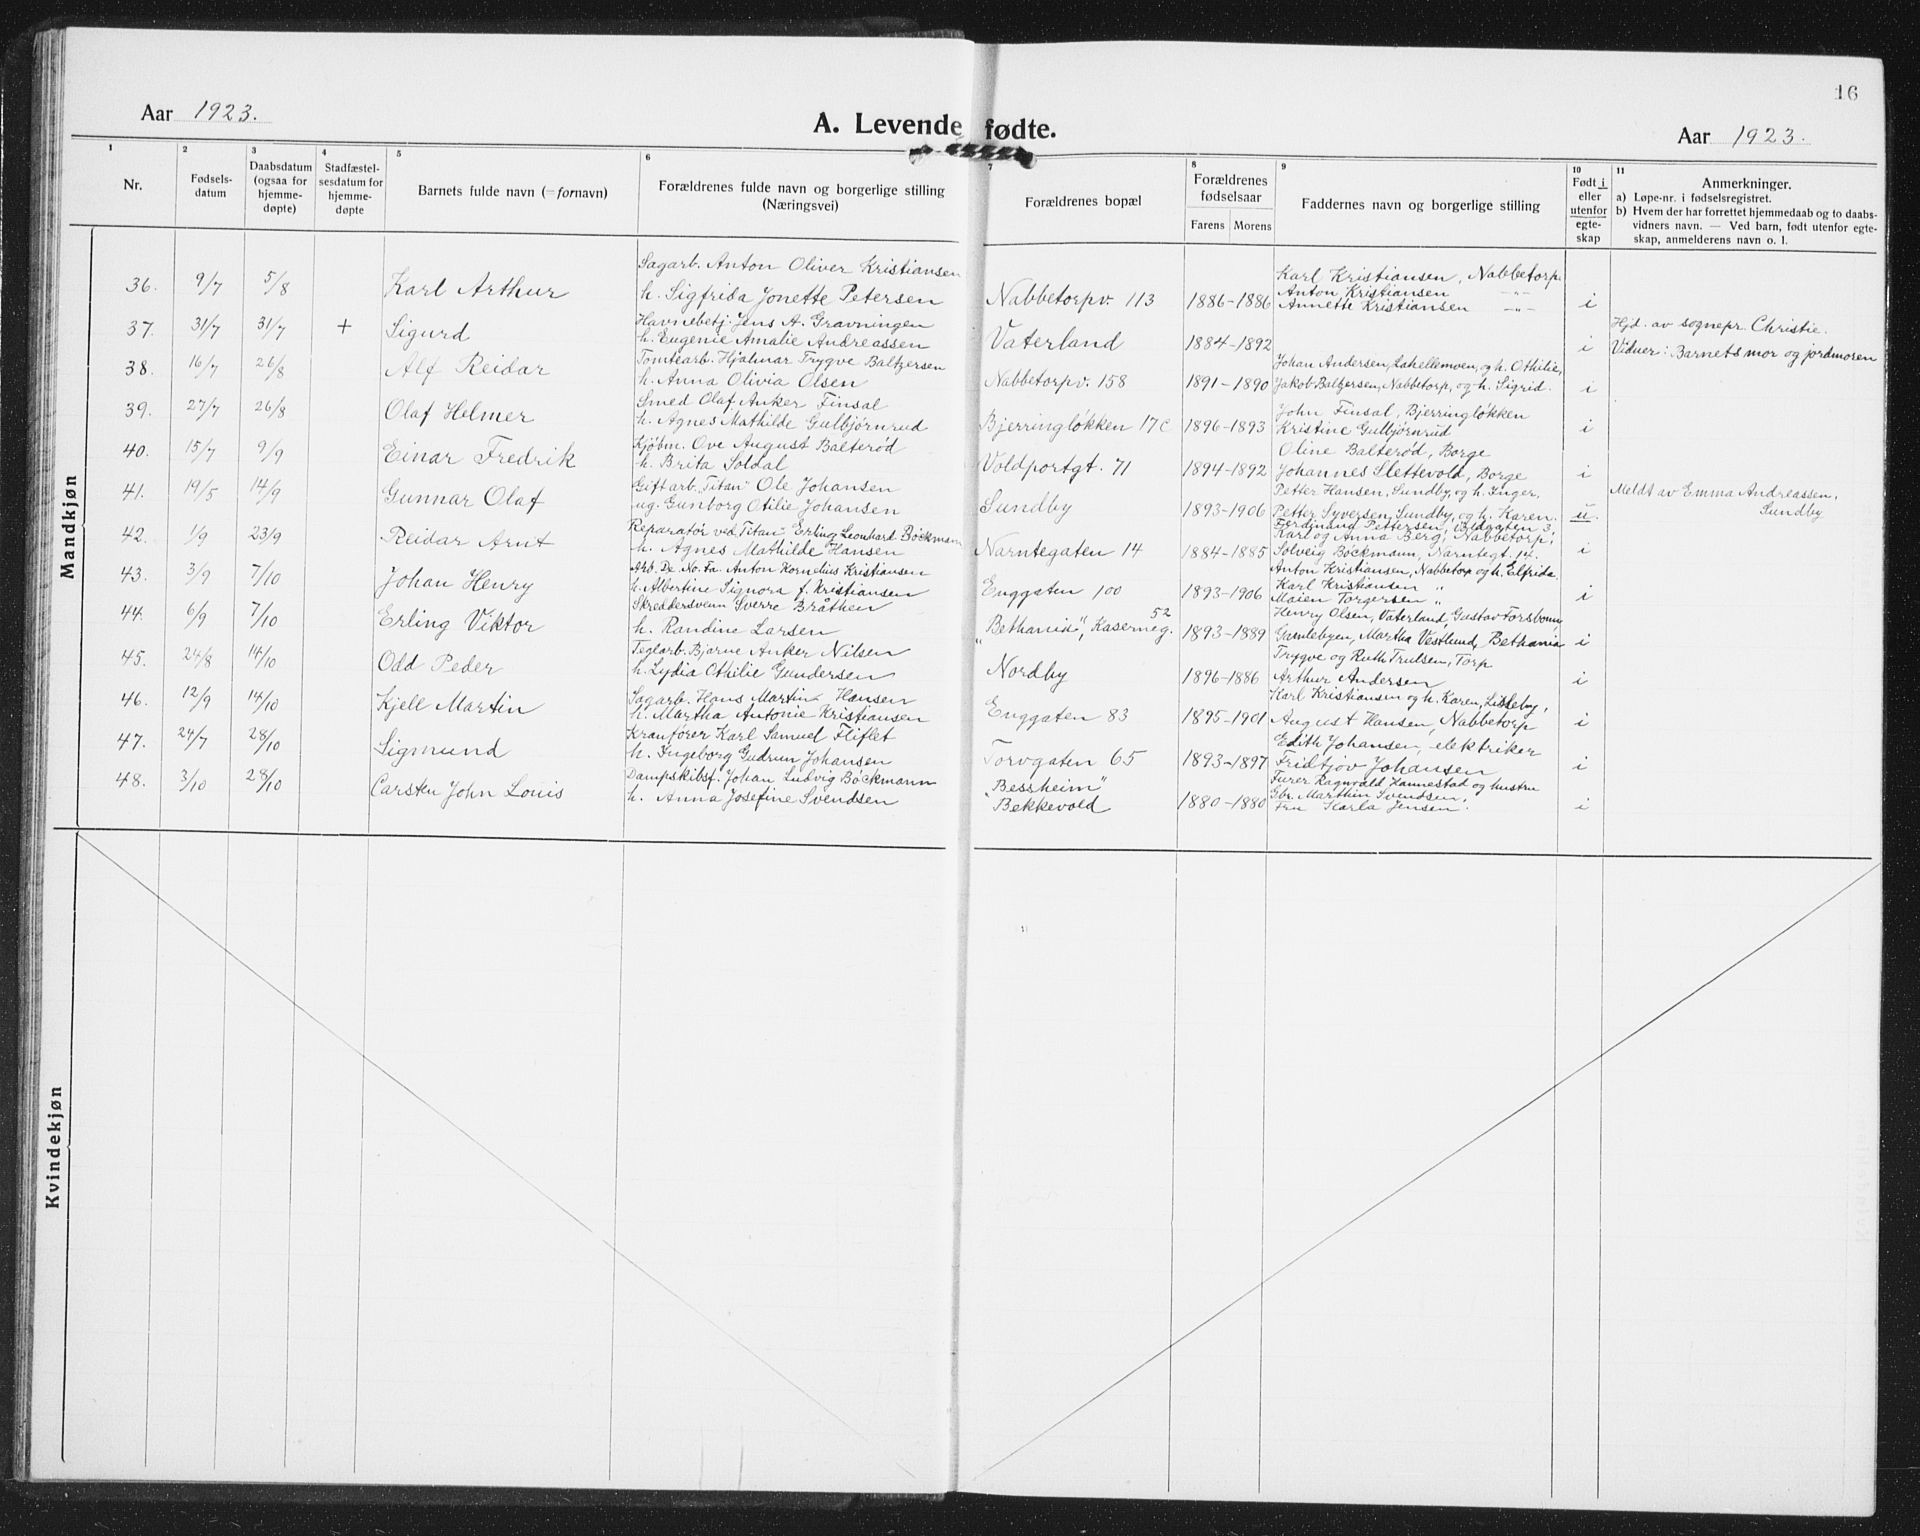 16
Aar 1923.
A. Levende fødte.
Aar 1923.
1 2 3 4 5 6 7 8 9 10 11
Nr.
Fødsels-
datum
Daabsdatum
(ogsaa for
hjemme-
døpte)
Stadfæstel-
sesdatum for
hjemme-
døpte
Barnets fulde navn (= fornavn)
Forældrenes fulde navn og borgerlige stilling
(Næringsvei)
Forældrenes bopæl
Forældrenes
fødselsaar
Farens Morens
Faddernes navn og borgerlige stilling
Født i
eller
utenfor
egte-
skap
Anmerkninger.
a) Løpe-nr. i fødselsregistret.
b) Hvem der har forrettet hjemmedaab og to daabs-
vidners navn. — Ved barn, født utenfor egte-
skap, anmelderens navn o. l.
Mandkjøn
36. 9/7 5/8 Karl Arthur
Sagarb. Anton Oliver Kristiansen
h. Sigfrida Jonette Petersen
Nabbetorpv. 113 1886-1886
Karl Kristiansen, Nabbetorp.
Anton Kristiansen -"-
Annette Kristiansen -"-
i
37. 31/7 31/7 + Sigurd
Havnebetj. Jens A. Gravningen
h. Eugenie Amalie Andreassen
Vaterland 1884-1892 i
Hjd. av sognepr. Christie.
Vidner: Barnets mor og jordmoren
38. 16/7 26/8 Alf Reidar
Tomtearb. Hjalmar Trygve Baltzersen
h. Anna Olivia Olsen
Nabbetorpv. 158 1891-1890
Johan Andersen, Lahellemoen, og h. Othilie,
Jakob Baltzersen, Nabbetorp, og h. Sigrid.
i
39. 27/7 26/8 Olaf Helmer
Smed Olaf Anker Finsal
h. Agnes Mathilde Gulbjørnrud
Bjerringløkken 17c 1896-1893
John Finsal, Bjerringløkken
Kristine Gulbjørnrud
i
40. 15/7 9/9 Einar Fredrik
Kjøbm. Ove August Balterød
h. Brita Soldal
Voldportgt. 71 1894-1892
Oline Balterød, Borge
Johannes Slettevold, Borge
i
41. 19/5 14/9 Gunnar Olaf
Giftarb. "Titan" Ole Johansen
ug. Gunborg Otilie Johansen
Sundby 1893-1906
Petter Hansen, Sundby, og h. Inger.
Petter Syversen, Sundby, og h. Karen.
u.
Meldt av Emma Andreassen,
Sundby
42. 1/9 23/9 Reidar Arnt
Reparatør ved "Titan" Erling Leonhart Bøckmann
h. Agnes Mathilde Hansen
Narntegaten 14 1884-1885
Ferdinand Pettersen, Voldgaten 3,
Karl og Anna Berg, Nabbetorp,
Solveig Bøckmann, Narntegt. 14.
i
43. 3/9 7/10 Johan Henry
Arb. De. No. Fa. Anton Kornelius Kristiansen
h. Albertine Signora f. Kristiansen
Enggaten 100 1893-1906
Anton Kristiansen, Nabbetorp og h. Elfrida.
Karl Kristiansen "
Maien Torgersen "
i
44. 6/9 7/10 Erling Viktor
Skreddersvenn Sverre Bråthen
h. Randine Larsen
"Bethania", Kaserneg. 52 1893-1889
Henry Olsen, Vaterland, Gustav Torsbonn,
Gamlebyen, Martha Vestlund, Bethania
i
45. 24/8 14/10 Odd Peder
Teglarb. Bjarne Anker Nilsen
h. Lydia Othilie Gundersen
Nordby 1896-1886
Trygve og Ruth Trulsen, Torp
Arthur Andersen
i
46. 12/9 14/10 Kjell Martin
Sagarb. Hans Martin Hansen
h. Martha Antonie Kristiansen
Enggaten 83 1895-1901
Karl Kristiansen og h. Karen, Lisleby,
August Hansen, Nabbetorp
i
47. 24/7 28/10 Sigmund
Kranfører Karl Samuel Fliflet
h. Ingeborg Gudrun Johansen
Torvgaten 65 1893-1897
Edith Johansen, elektriker
Fridtjov Johansen
i
48. 3/10 28/10 Carsten John Louis
Dampskibsf. Johan Ludvig Bøckmann
h. Anna Josefine Svendsen
"Bessheim"
Bekkevold 1880-1880
Furer Ragnvald Hannestad og hustru
Gbr. Marthin Svendsen,
Fru Karla Jensen.
i
Kvindekjøn